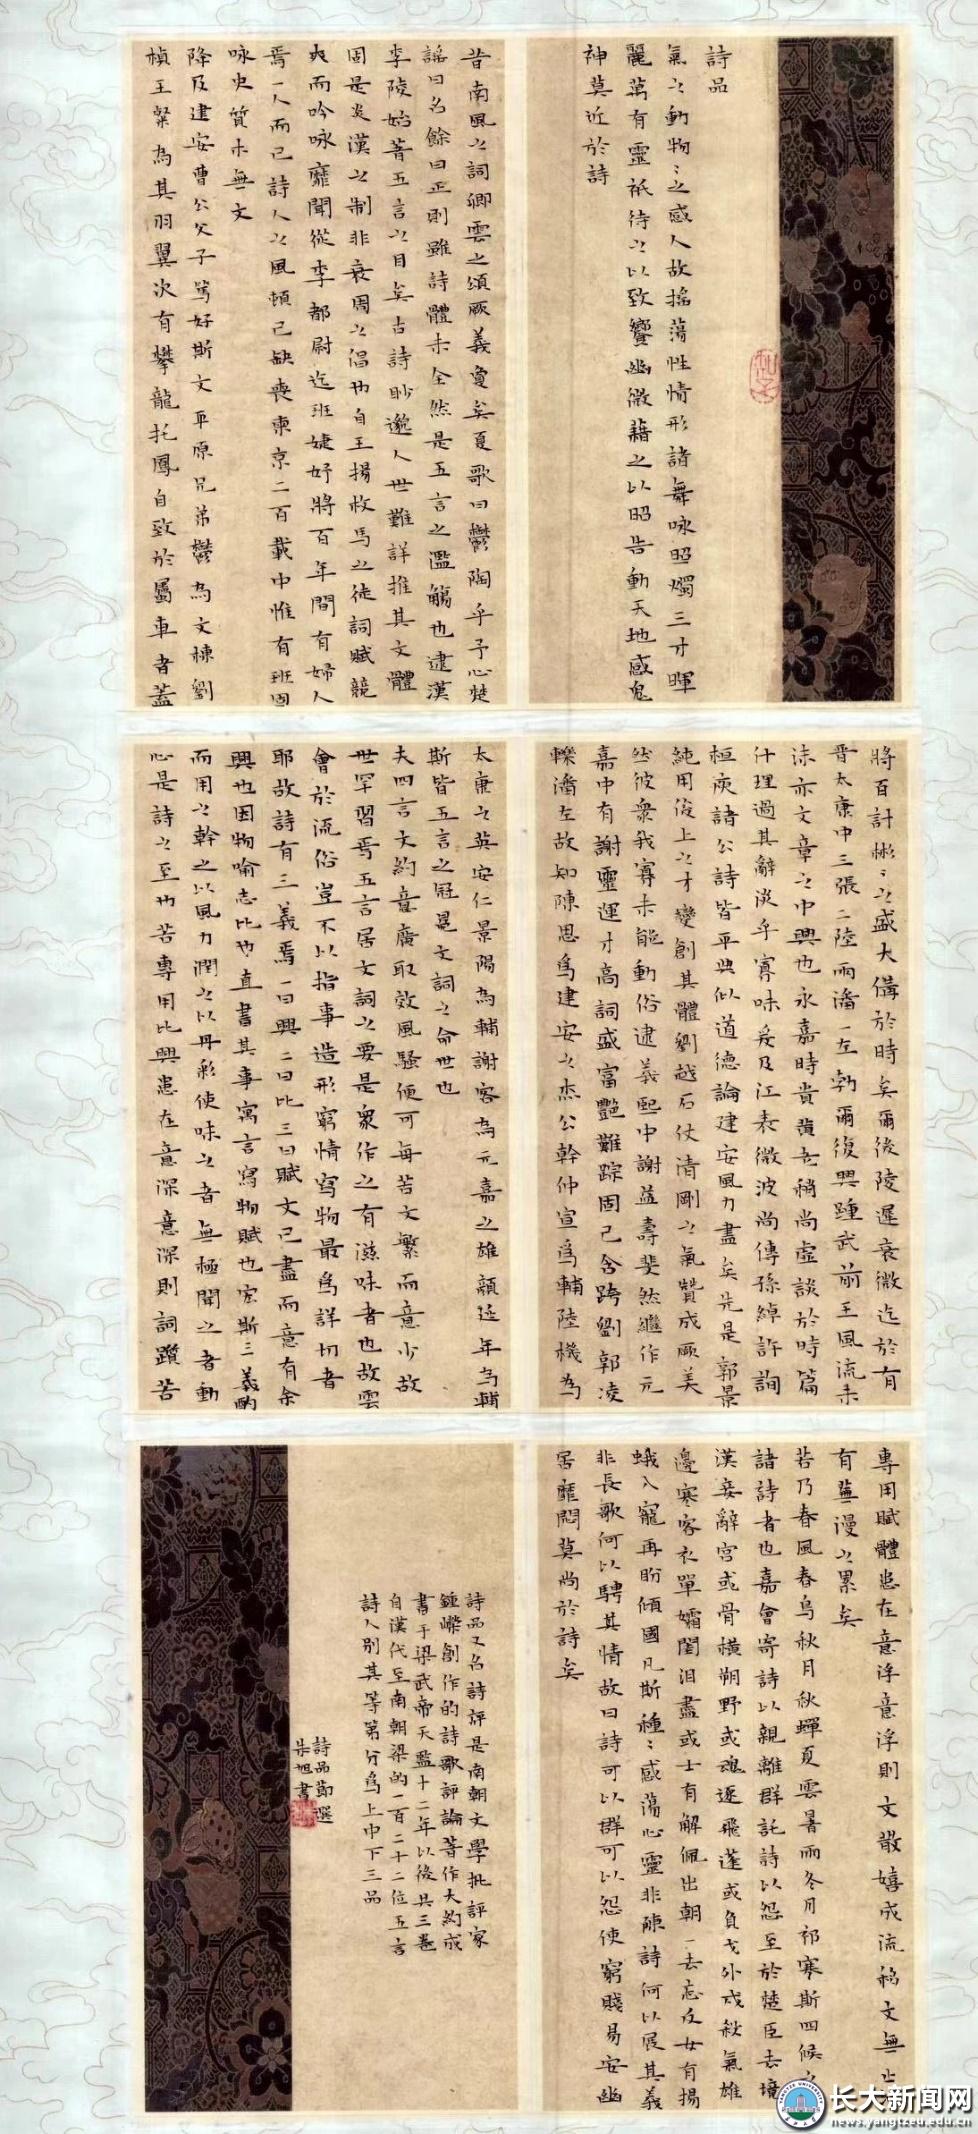 詩品
氣之動物物之感人故搖蕩性情形諸舞咏照燭三才暉
麗萬有靈祇待之以致饗幽微藉之以昭告動天地感鬼
神莫近於詩
昔南風之詞卿雲之頌厥義夐矣夏歌曰鬱陶乎予心楚
謠曰名餘曰正則雖詩體未全然是五言之濫觴也逮漢
李陵始著五言之目矣古詩眇邈人世難詳推其文體
固是炎漢之制非衰周之倡也自王揚枚馬之徒詞賦競
爽而吟咏靡聞從李都尉迄班婕妤將百年間有婦人
焉一人而已詩人之風頓已缺喪東京二百載中惟有班固
咏史質木無文
降及建安曹公父子篤好斯文平原兄弟鬱為文棟劉
楨王粲為其羽翼次有攀龍托鳳自致於屬車者蓋
將百計彬彬之盛大備於時矣爾後陵遲衰微迄於有
晉太康中三張二陸兩潘一左勃爾復興踵武前王風流未
沫亦文章之中興也永嘉時貴黃老稍尚虛談於時篇
什理過其辭淡乎寡味爰及江表微波尚傳孫綽許詢
桓庾諸公詩皆平典似道德論建安風力盡矣先是郭景
純用俊上之才變創其體劉越石仗清剛之氣贊成厥美
然彼衆我寡未能動俗逮義熙中謝益壽斐然繼作元
嘉中有謝靈運才高詞盛富艷難踪固已含跨劉郭凌
轢潘左故知陳思為建安之杰公幹仲宣為輔陸機為
太康之英安仁景陽為輔謝客為元嘉之雄顏延年為輔
斯皆五言之冠冕文詞之命世也
夫四言文約意廣取效風騷便可每苦文繁而意少故
世罕習焉五言居文詞之要是衆作之有滋味者也故雲
會於流俗豈不以指事造形窮情寫物最為詳切者
耶故詩有三義焉一曰興二曰比三曰賦文已盡而意有余
興也因物喻志比也直書其事寓言寫物賦也宏斯三義酌
而用之幹之以風力潤之以丹彩使味之者無極聞之者動
心是詩之至也若專用比興患在意深意深則詞躓若
專用賦體患在意浮意浮則文散嬉成流移文無止
有蕪漫之累矣
若乃春風春鳥秋月秋蟬夏雲暑雨冬月祁寒斯四候之
諸詩者也嘉會寄詩以親離群託詩以怨至於楚臣去境
漢妾辭宮或骨橫朔野或魂逐飛蓬或負戈外戍秋氣雄
邊寒客衣單孀閨泪盡或士有解佩出朝一去忘反女有揚
蛾入寵再盼傾國凡斯種種感蕩心靈非陳詩何以展其義
非長歌何以騁其情故曰詩可以群可以怨使窮賤易安幽
居靡悶莫尚於詩矣
詩品又名詩評是南朝文學批評家
鍾嶸創作的詩歌評論著作大約成
書于梁武帝天監十二年以後共三卷
自漢代至南朝梁的一百二十二位五言
詩人別其等第分為上中下三品
詩品節選
朱旭書
長大新闻网
news.yangtzeu.edu.cn